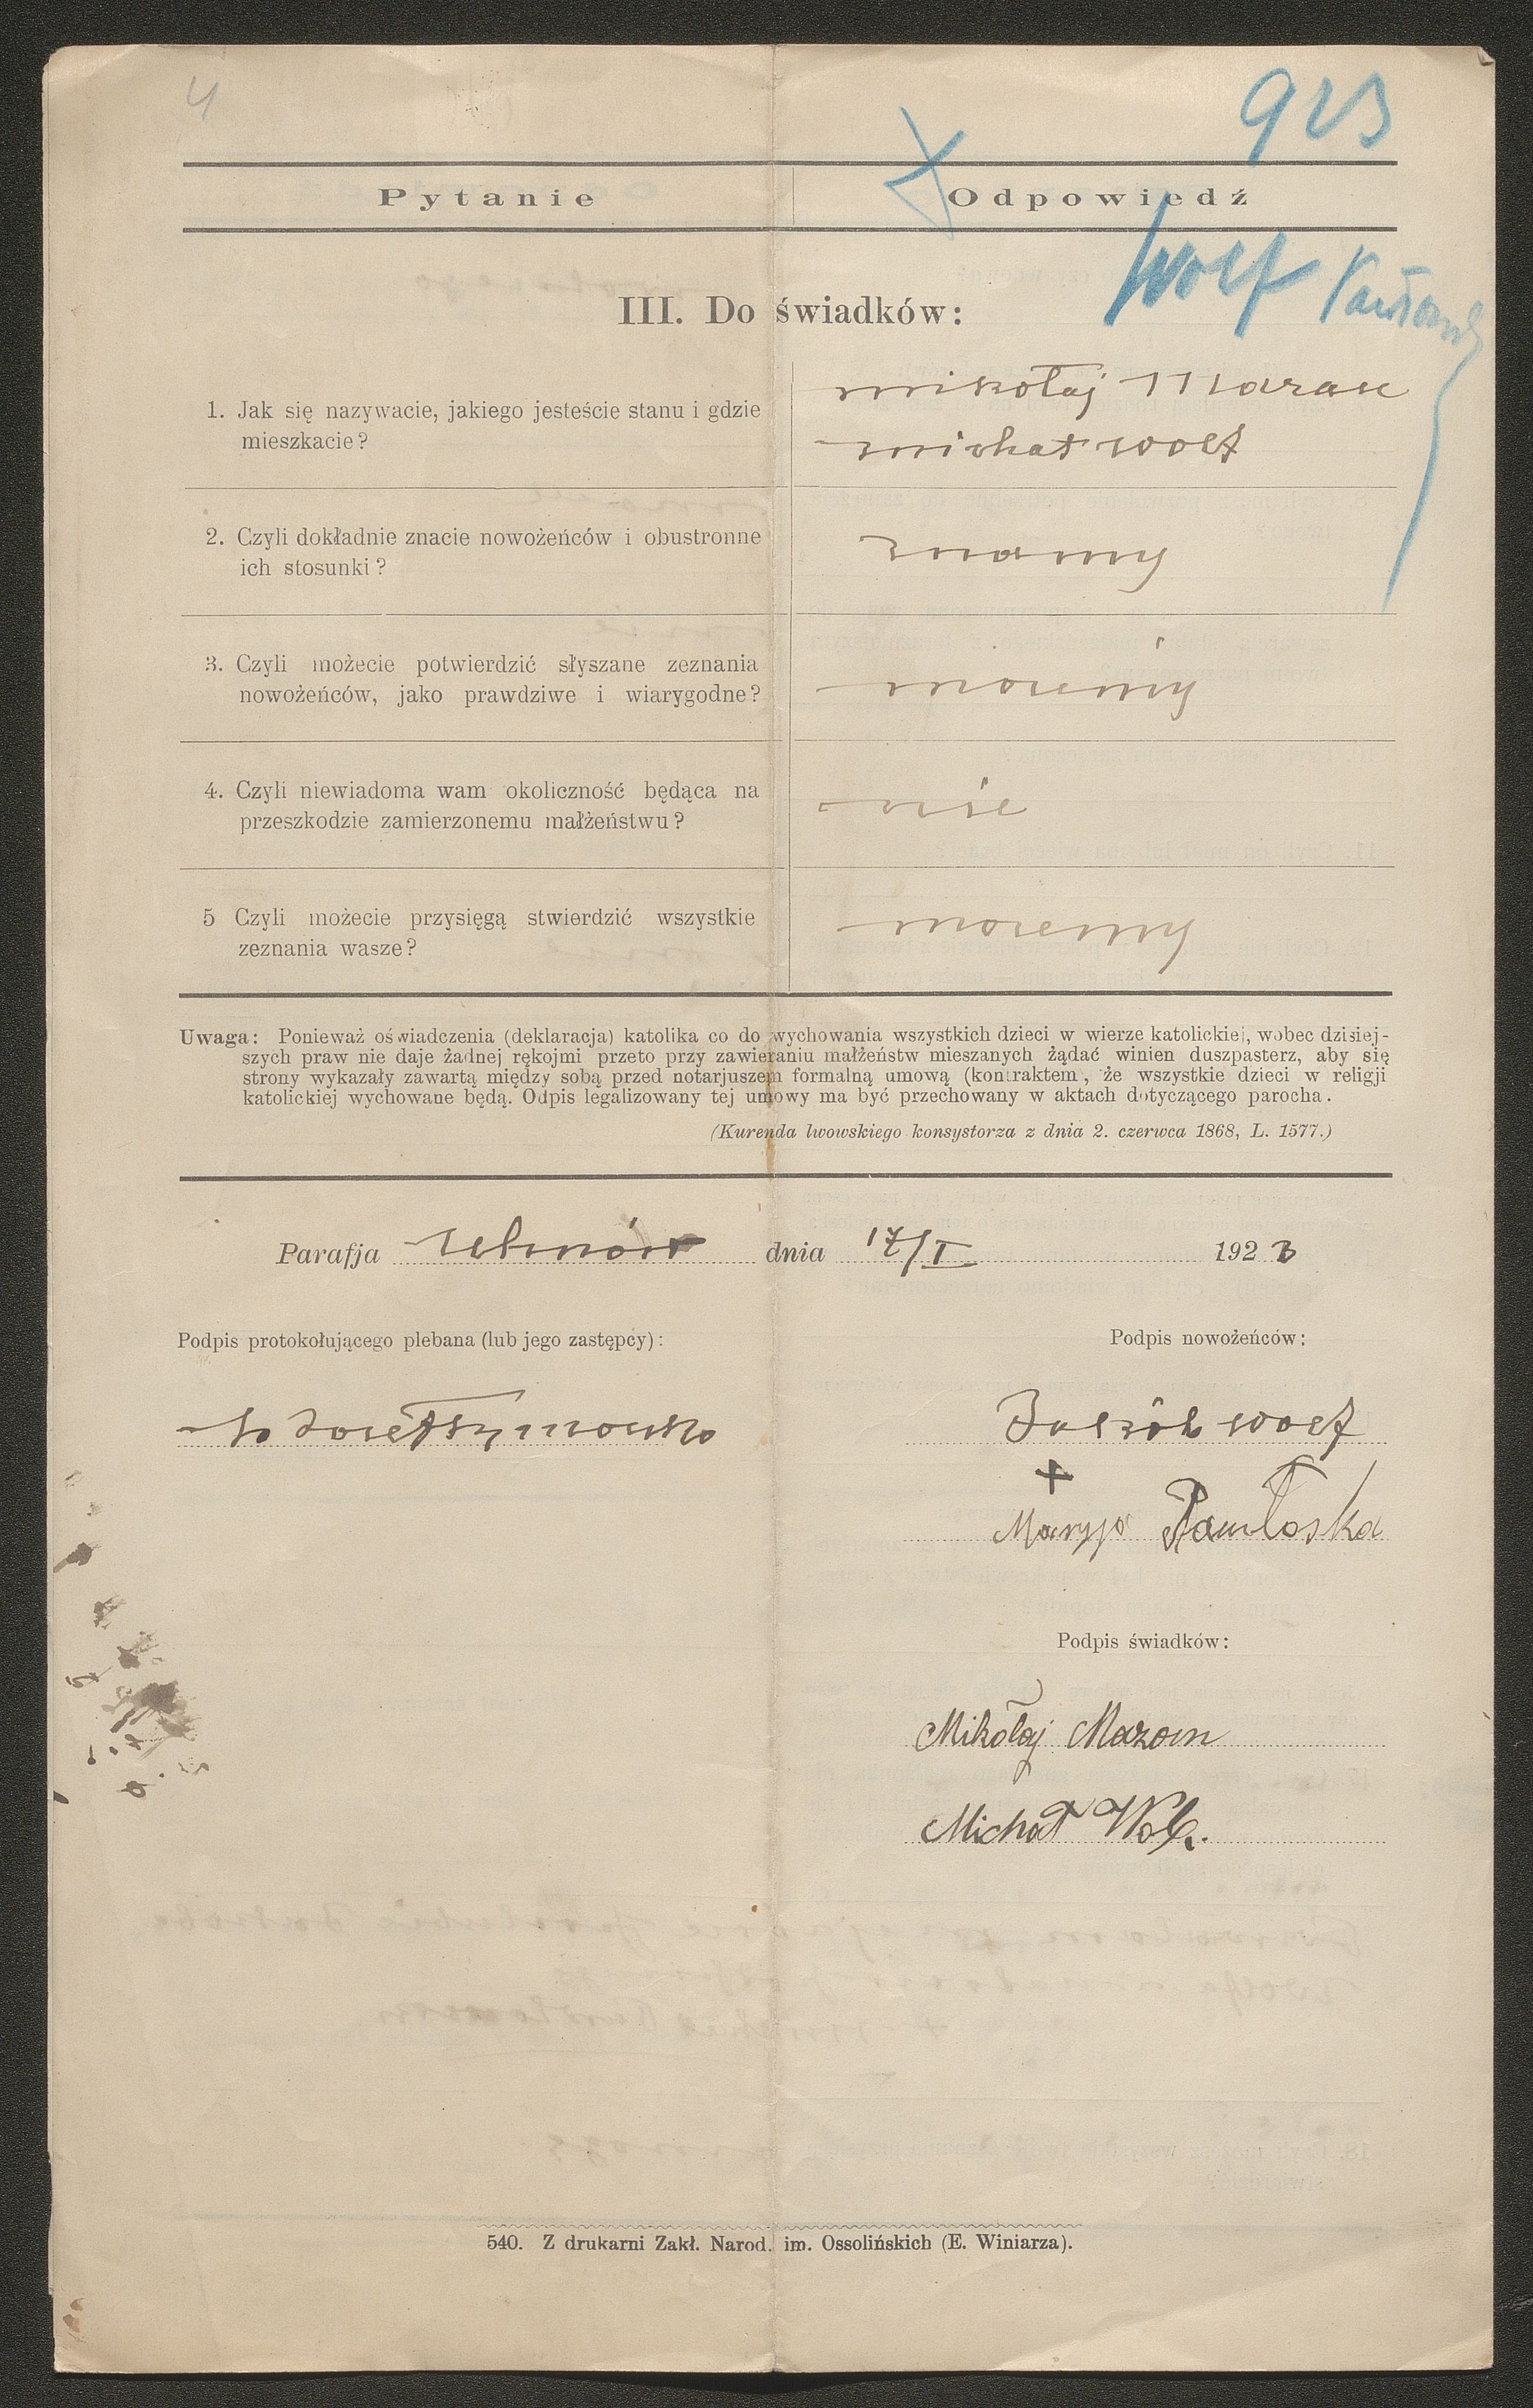 4
923
Pytanie
Odpowiedź
Wolf
III. Do świadków:
1. Jak się nazywacie, jakiego jesteście stanu i gdzie
mieszkacie?
mikołaj
michał wolf
2. Czyli dokładnie znacie nowożeńców i obustronne
ich stosunki?
znamy
3. Czyli możecie potwierdzić słyszane zeznania
nowożeńców, jako prawdziwe i wiarygodne?
możemy
4. Czyli niewiadoma wam okoliczność będąca na
przeszkodzie zamierzonemu małżeństwu?
nie
5 Czyli możecie przysięgą stwierdzić wszystkie
zeznania wasze?
możemy
Uwaga: Ponieważ oświadczenia (deklaracja) katolika co do wychowania wszystkich dzieci w wierze katolickiej, wobec dzisiej-
szych praw nie daje żadnej rękojmi przeto przy zawieraniu małżeństw mieszanych żądać winien duszpasterz, aby się
strony wykazały zawartą między sobą przed notarjuszem formalną umową (kontraktem, że wszystkie dzieci w religji
katolickiej wychowane będą. Odpis legalizowany tej umowy ma być przechowany w aktach dotyczącego parocha.
(Kurenda lwowskiego konsystorza z dnia 2. czerwca 1868, L. 1577.)
Parafja Uhnów dnia 17/I 1923
Podpis protokołującego plebana (lub jego zastępcy):
Podpis nowożeńców:
Jakób wolf
+
Maryja Pawłoska
Podpis świadków:
Mikołaj
Michał
540. Z drukarni Zakł. Narod. im. Ossolińskich (E. Winiarza).